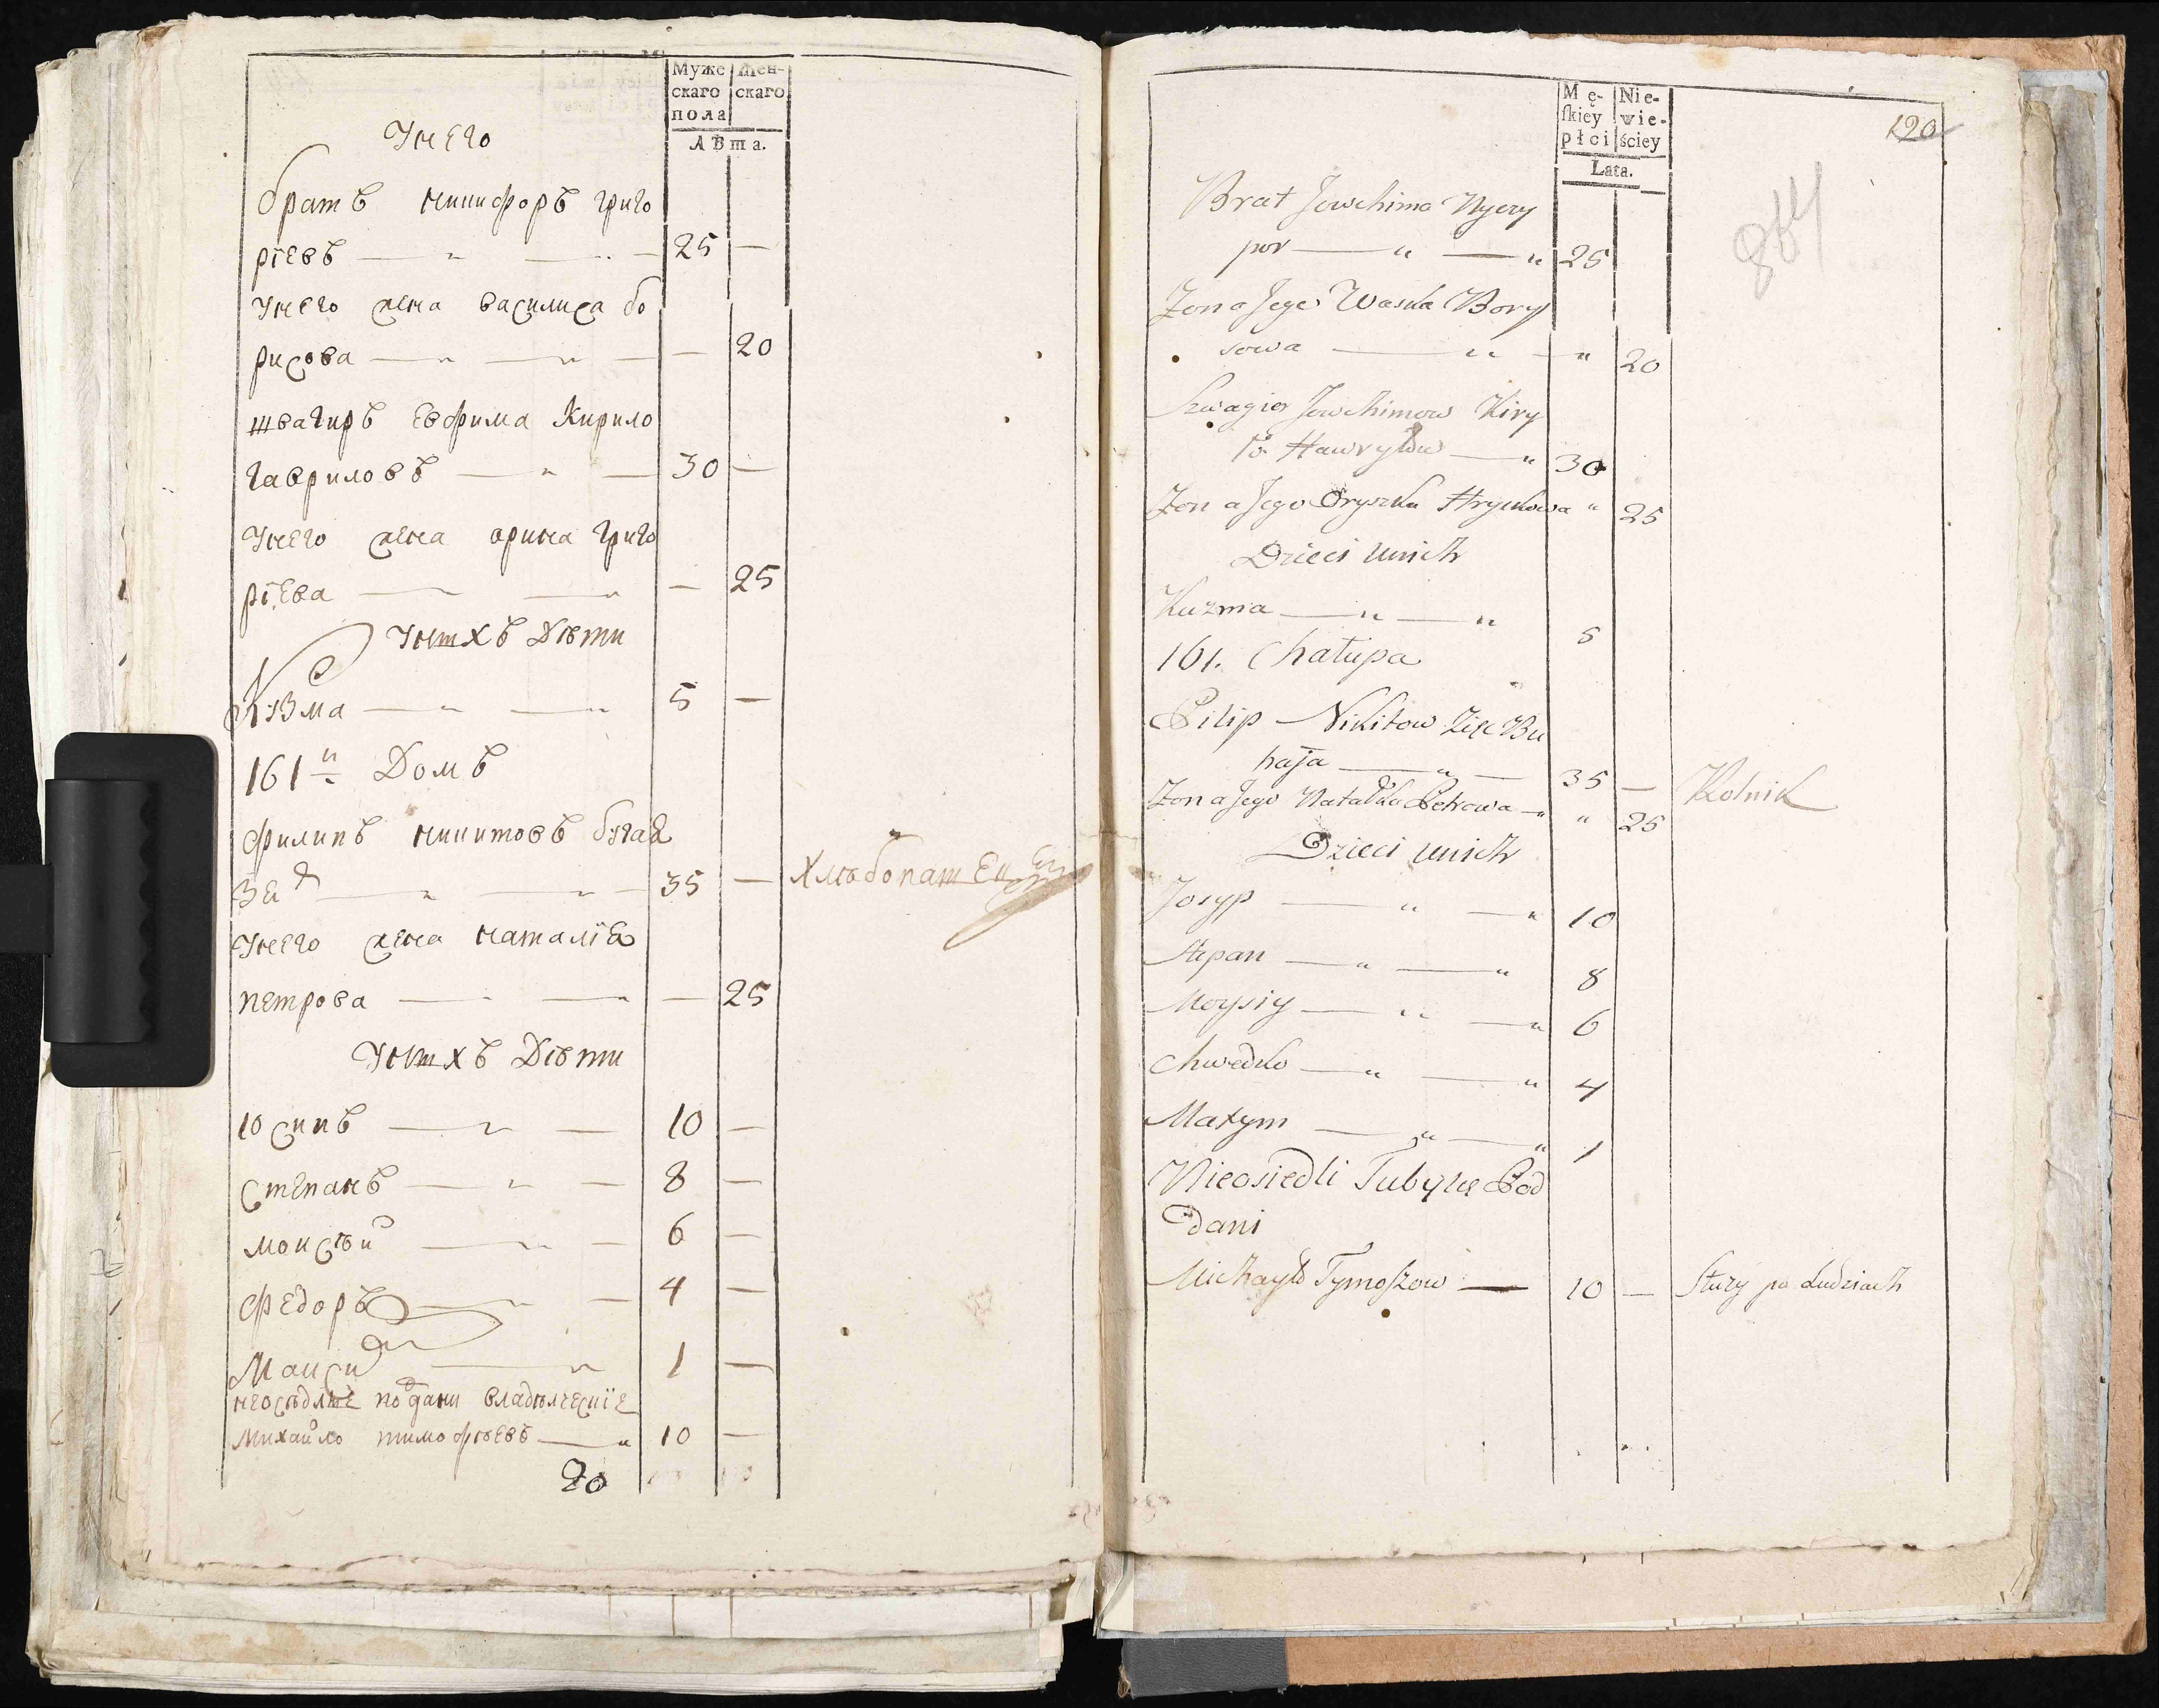 Муже
скаго
пола
Жен-
скаго
Лѣта.
Унего
братъ никифоръ григо
рїевъ — „ — „ — 25 —
Унего жена василиса бо
рисова — „ — „ — — 20
швагиръ Евфима Кирило
гавриловъ — „ — 30 —
Унего жена арина григо
рїева — „ — „ — 25
Унихъ Дѣти
Кузма — „ — „ 5 —
161й Домъ
филипъ никитовъ бугая
зя — „ — „ — 35 — Хлѣбопашец
Унего жена наталїя
петрова — „ — „ — 25
Унихъ Дѣти
юсипъ — „ — 10 —
степанъ — „ — 8 —
моисѣй — „ — 6 —
федоръ — „ — 4 —
Макси — „ 1 —
неосѣдлые подани владѣлческїе
Михайло тимофѣевъ — „ 10 —
20
Mę-
skiey
płci
Nie-
wie-
ściey
Lata.
120
Brat Jowchima Nyczy
por — „ — „ 25
Zona Jego Waska Bory
sowa — „ — „ 20
Szwagier Jowchimow Kiry
ło Hawryłow — „ 30
Zona Jego Oryszka Hryckowa „ 25
Dzieci unich
Kuzma — „ — „ 5
161. Chałupa
Pilip Nikitow Zięc Bu
haja — „ — 35 — Rolnik
Zona Jego Natałka Petrowa — „ „ 25
Dzieci unich
Josyp — „ — „ 10
Stepan — „ — „ 8
Moysiy — „ — „ 6
Chwedko — „ — „ 4
Maxym — „ — „ 1
Nieosiedli Pod
dani
Michayło Tymoszow — 10 — Służy po Ludziach